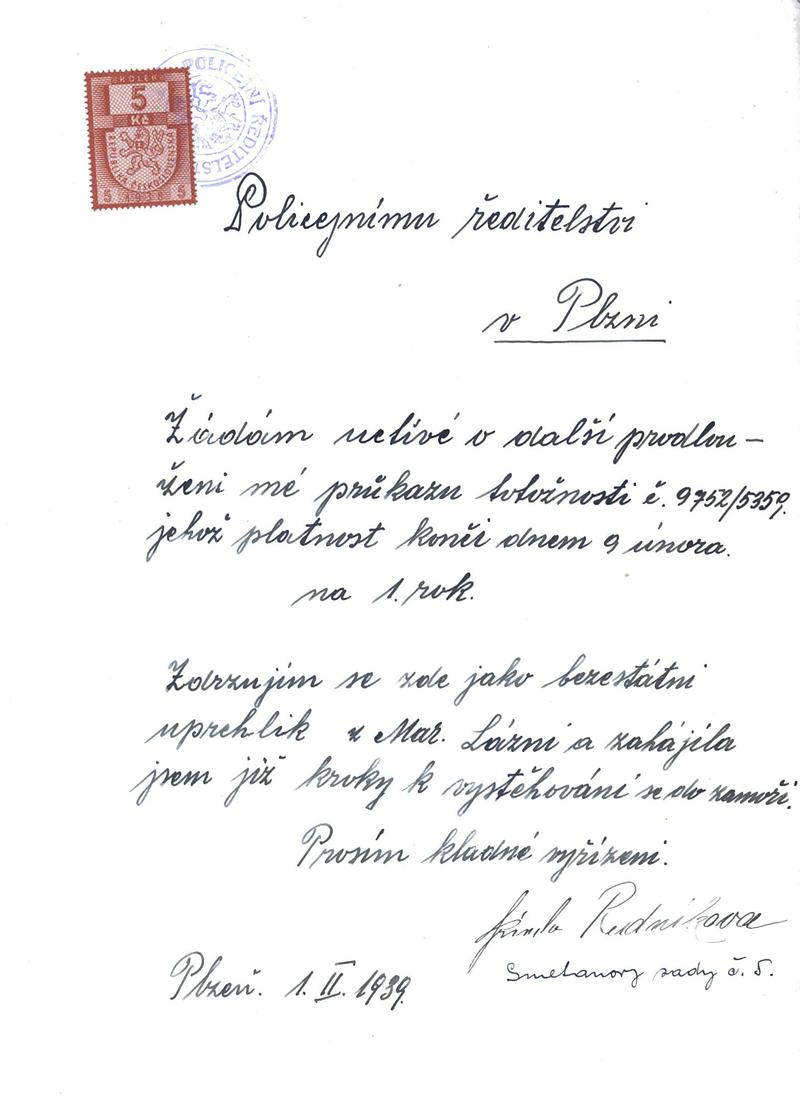 KOLEK
5
Kč
REPUBLIKA ČESKOSLOVENSKÁ
5 5
POLICEJNÍ ŘEDITELST
Policejnímu ředitelstvi
v Plzni
Žádám uctívé o další prodlou-
ženi mé průkazu totožnosti č. 9752/5359.
jehož platnost konči dnem 9 února.
na 1. rok.
Zdrzujím se zde jako bezestátni
uprehlik z Mar. Lázní a zahájila
jsem již kroky k vystěhování se do zamoři.
Prosím kladné vyřízeni.
Rudnikova
Smetanovy sady č. 5.
Plzeň. 1. II. 1939.